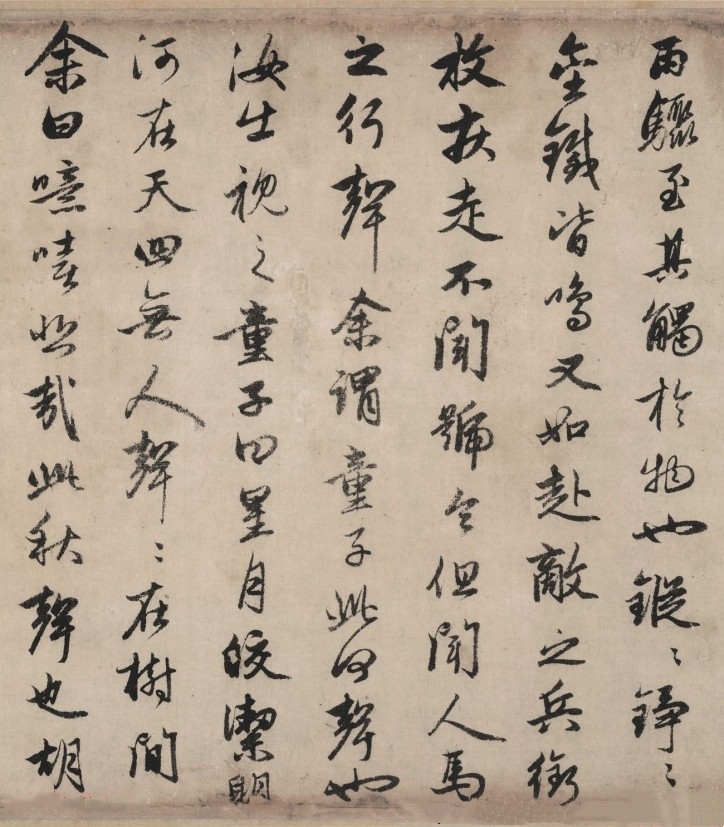 雨驟至其觸於物也鏦〻錚〻
金鐵皆鳴又如赴敵之兵銜
枚疾走不聞號令但聞人馬
之行聲余謂童子此何聲也
汝出視之童子曰星月皎潔明
河在天四無人聲〻在樹間
余曰噫嘻悲哉此秋聲也胡